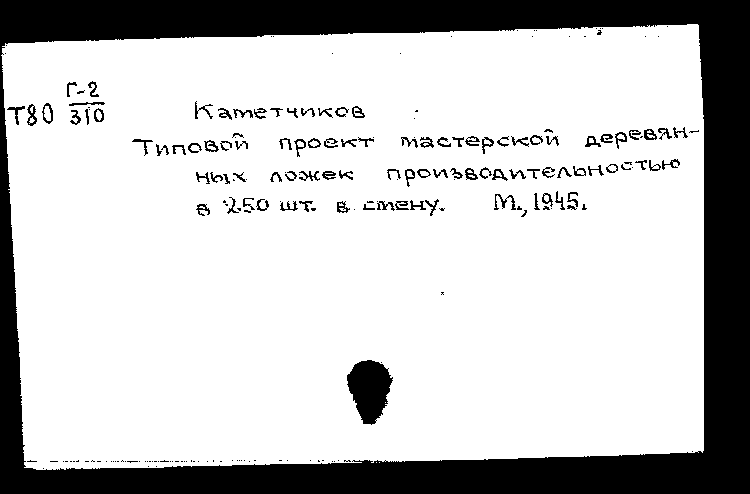 Г-2
Т80 310
Каметчиков
Типовой проект мастерской деревян-
ных ложек производительностью
в 250 шт. в смену. М., 1945.